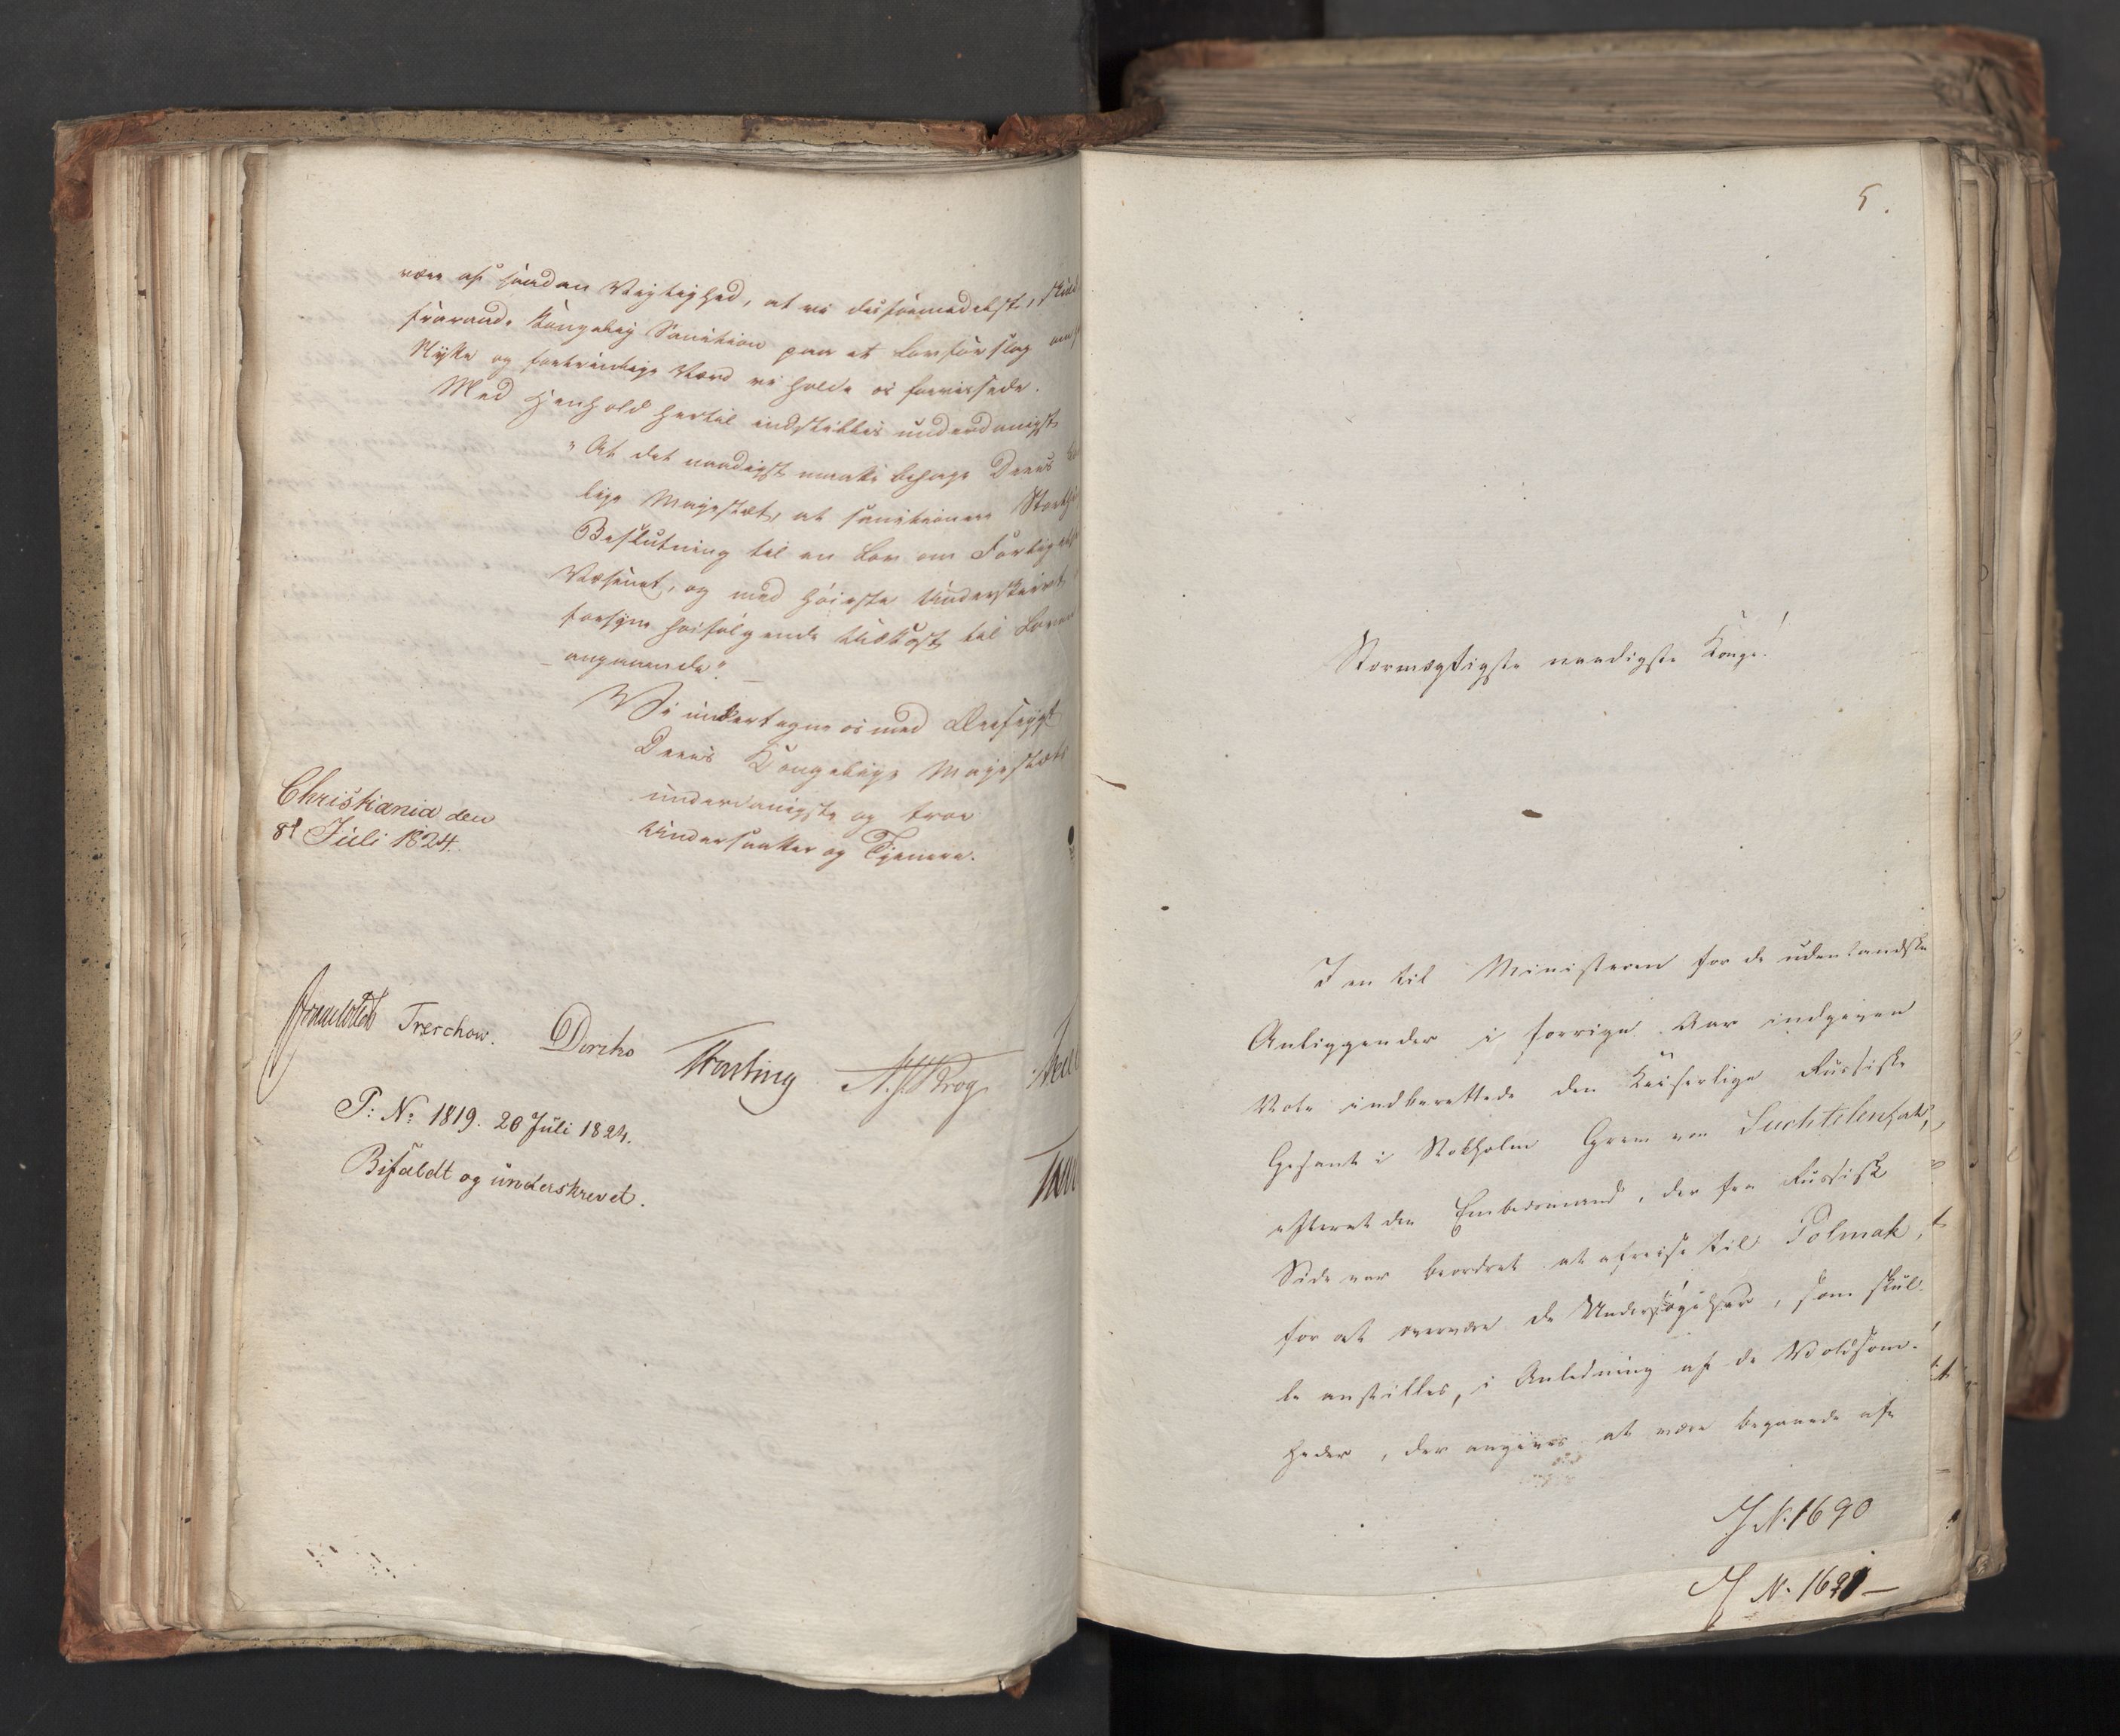 være af saadan Vigtighed, at vi desformedelst,
fraraade Kongelig Sanction paa et Lovforslag om
Nytte og fortrinlige Værd vi holde os forvissede.
Med Henhold hertil indstilles underdanigst
"At det naadigst maatte behage Deres
lige Majestæt, at sanctionere Storth
Beslutning til en Lov om Forligelses
Væsenet, og med høieste Underskrivt
forsyne hosfølgende Udkast til Loven
angaaende".
Vi undertegne os med Ærefrygt
Deres Kongelige Majestæts
underdanigste og troe
Undersaatter og Tjenere.
Christiania den
8d Juli 1824.
Treschow. Diriks
P: No 1819. 20 Juli 1824.
Bifaldt og underskrevet.
5.
Stormægtigste naadigste Konge!
I en til Ministeren for de udenlandske
Anliggender i forrige Aar indgiven
Note indberettede den Keiserlige Russiske
Gesant i Stokholm Greve von Suchtelen, at,
efterat den Embedsmand, der fra Russisk
Side var beordret at afreise til Polmak,
for at overvære de Undersøgelser, som skul-
le anstilles, i Anledning af de Voldsom-
heder, der angives at være begaaede af
J N. 1690
J N. 1691 —